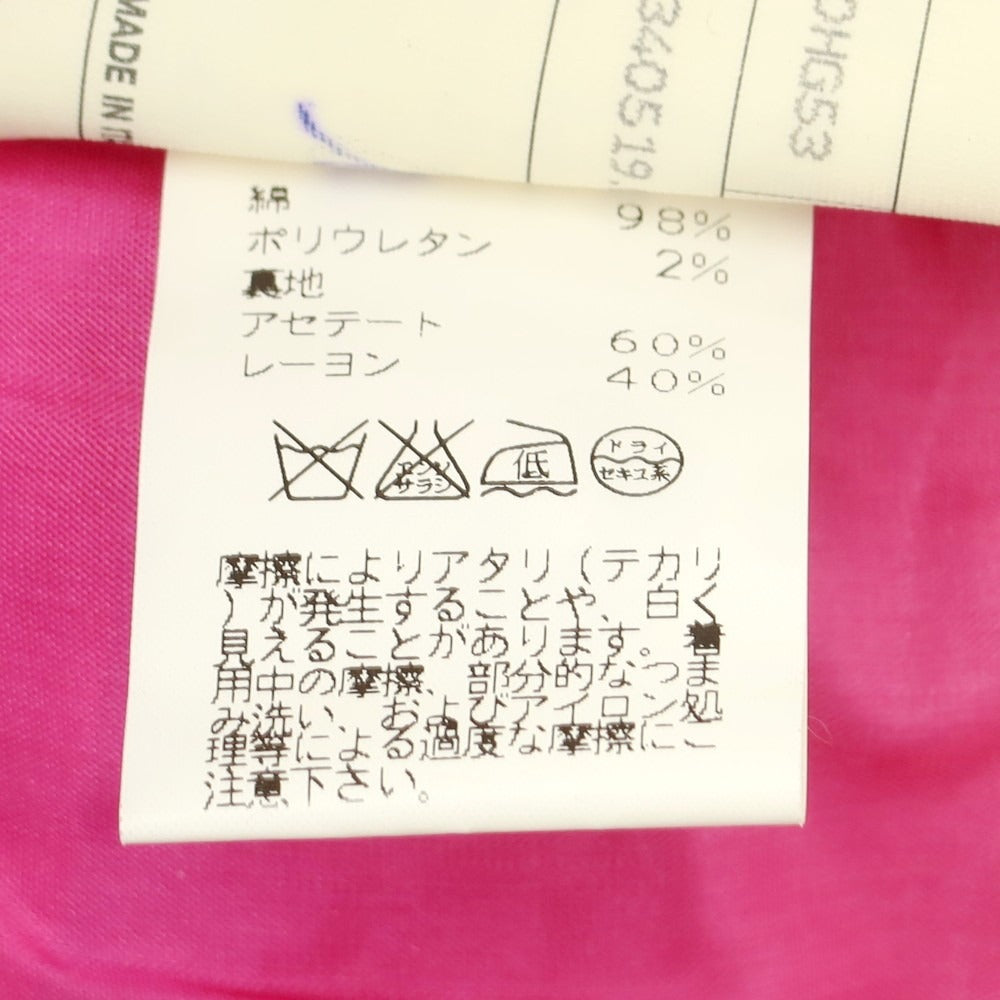 MADE IN
340519
OHG53
綿 98%
ポリウレタン 2%
裏地
アセテート 60%
レーヨン 40%
エンソ
サラシ
低
ドライ
セキユ系
摩擦によりアタリ（テカリ
）が発生することや、白く
見えることがあります。着
用中の摩擦、部分的なつま
み洗い、およびアイロン処
理等による過度な摩擦にご
注意下さい。